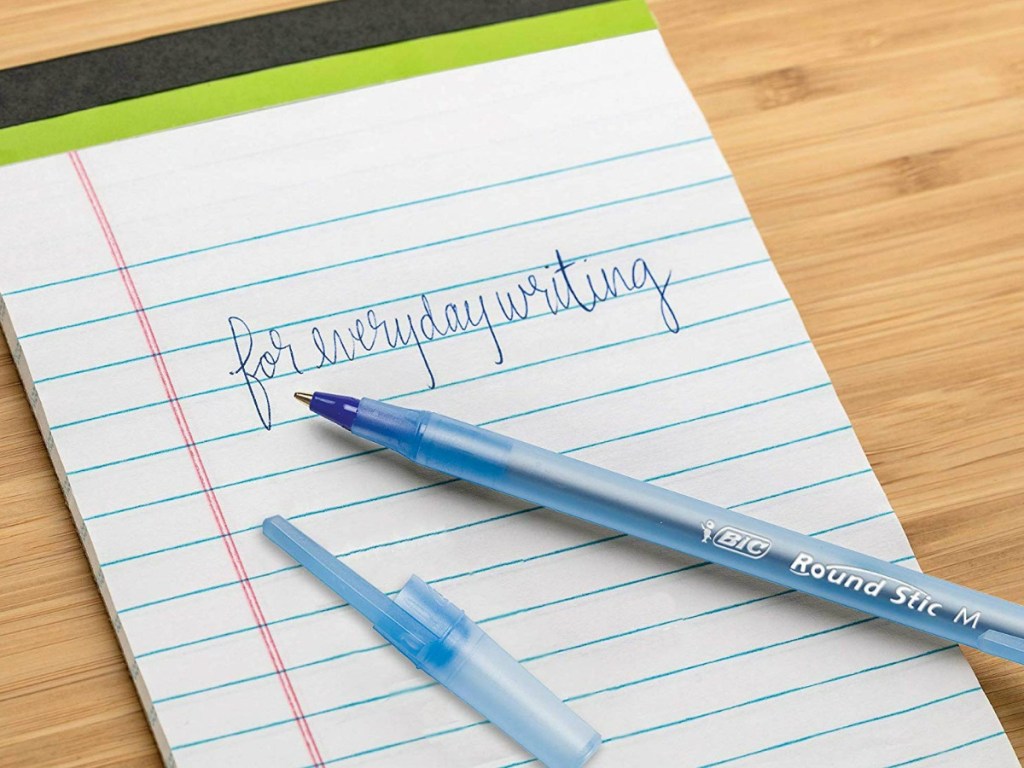 for everyday writing
BIC Round Stic M